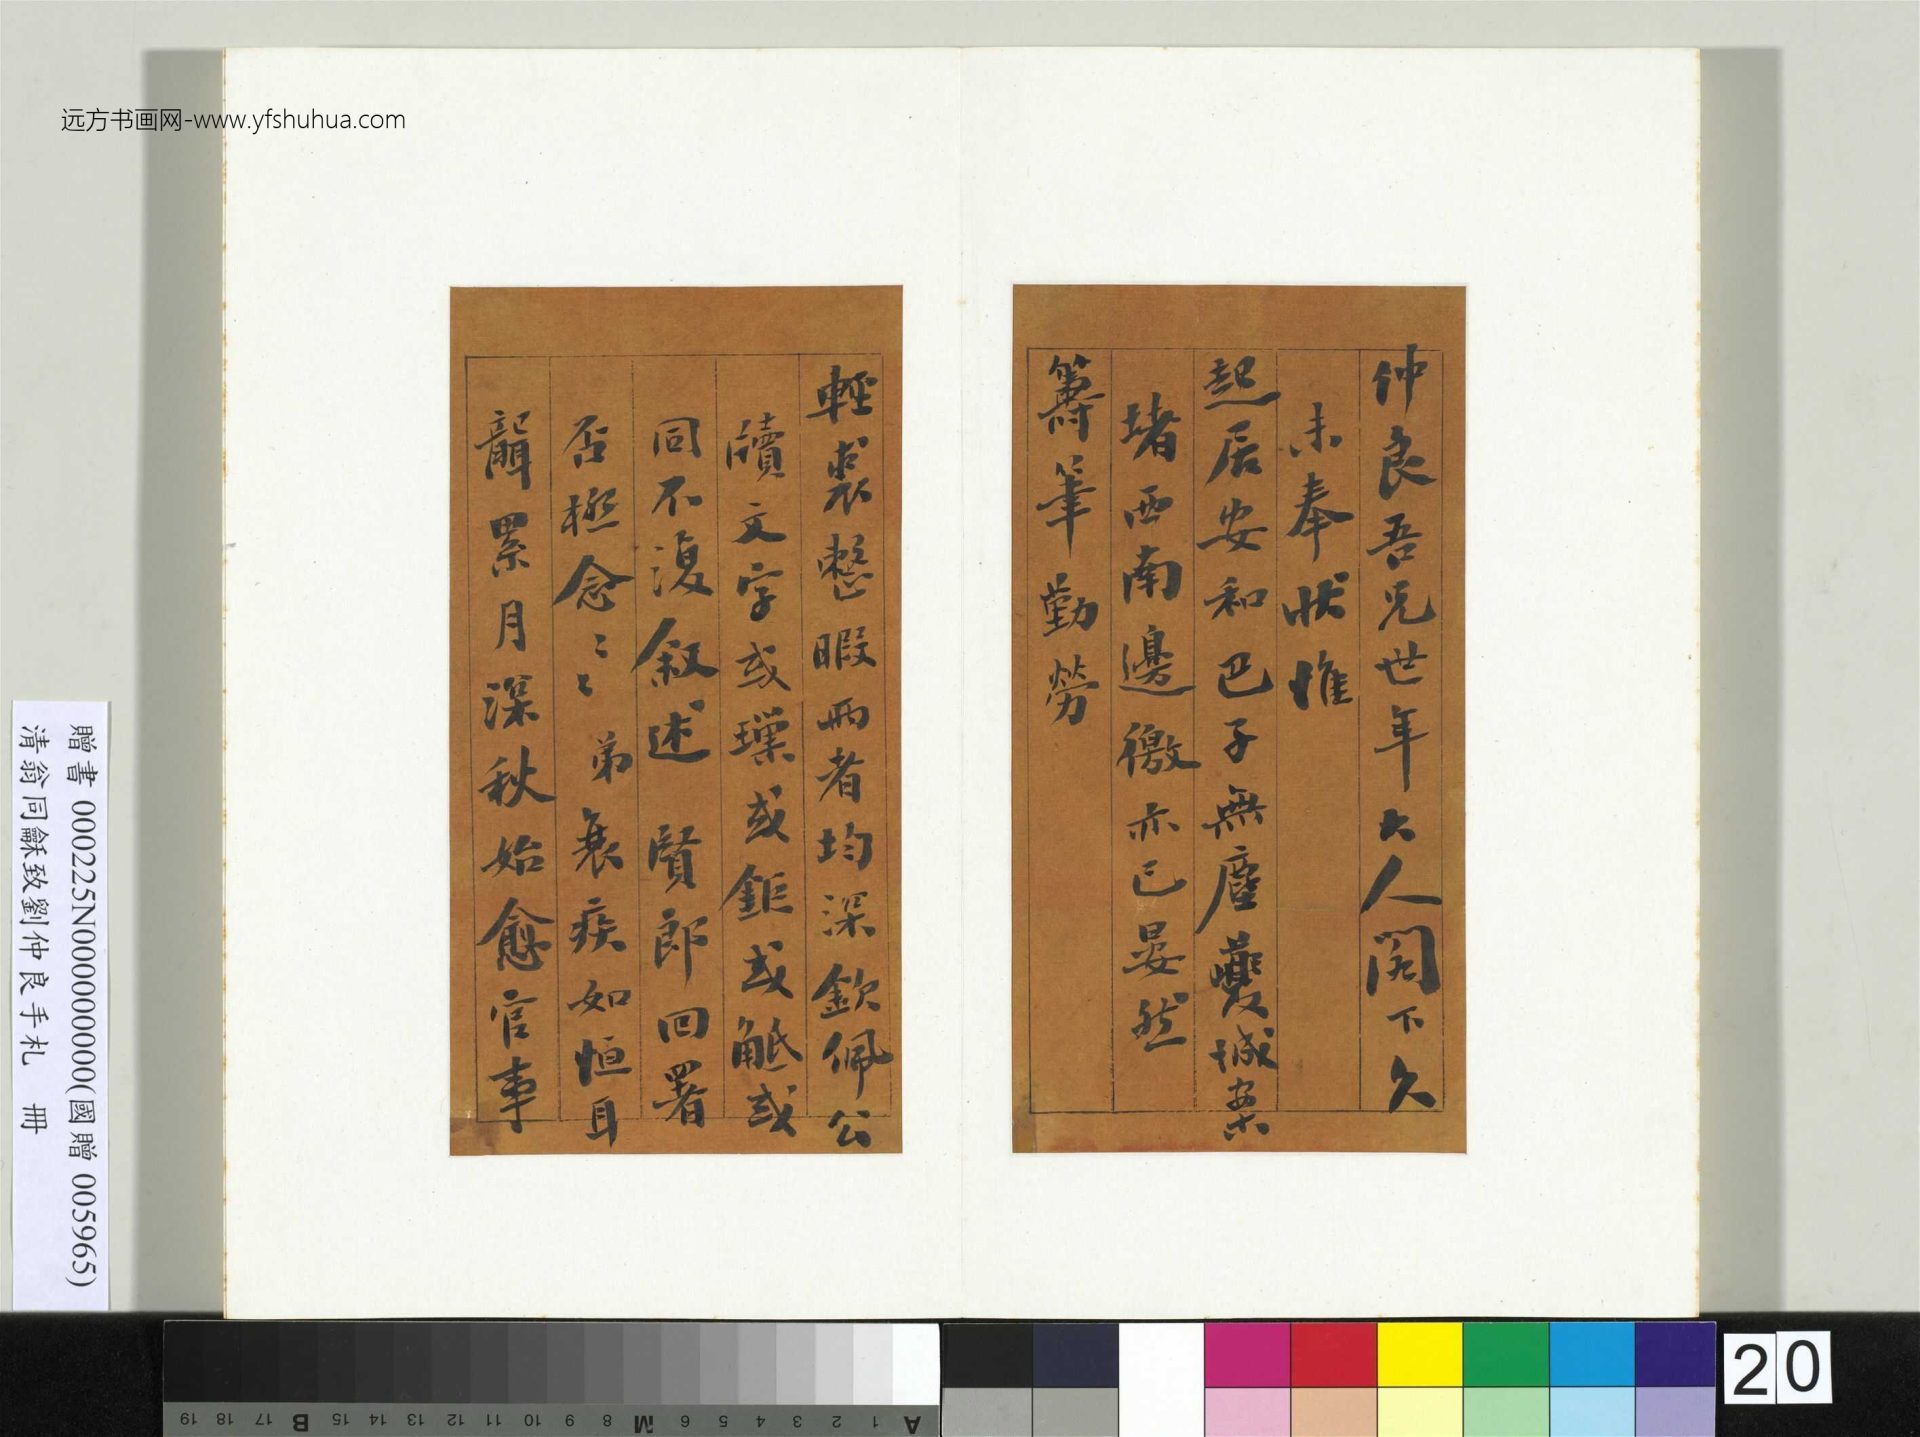 远方书画网-www.yfshuhua.com
仲良吾兄世年大人閣下久
未奉狀惟
起居安和巴子無塵夔城安
堵西南邊徼亦已晏然
籌筆勤勞
輕裘整暇兩者均深欽佩公
牘文字或璞或鉅或觝或
同不復敘述 賢郎回署
否極念〻〻弟衰疾如恒耳
聾累月深秋始愈官事
贈書 000225N000000000(國贈 005965)
清翁同龢致劉仲良手札 冊
20
A 1 2 3 4 5 6 M 8 9 10 11 12 13 14 15 B 17 18 19